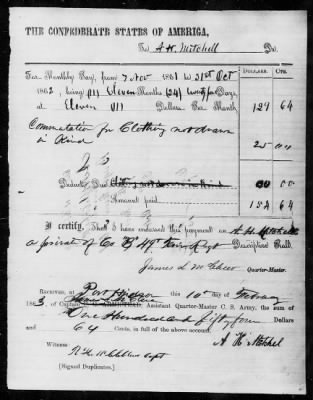 THE CONFEDERATE STATES OF AMERICA,
To A. H. Mitchell Dr.
DOLLARS. CTS.
For Monthly Pay, from 7 Nov 1861 to 31st Oct
1862, being (11) Eleven Months (24) twenty four Days,
at Eleven (11) Dollars Per Month, 129 64
Commutation for Clothing not drawn
in Kind 25 00
Deduct Due Clothing not drawn in kind 00 00
Amount paid 154 64
I certify, That I have indorsed this payment on A H Mitchell
a private of Co Regt Descriptive Roll.
James L McGhee Quarter-Master.
RECEIVED, at Port Hudson this 10th day of February
1863, of Captain Assistant Quarter-Master C. S. Army, the sum of
One Hundred and fifty four Dollars
and 64 Cents, in full of the above account.
A H Mitchel
Witness:
Capt
[Signed Duplicates.]